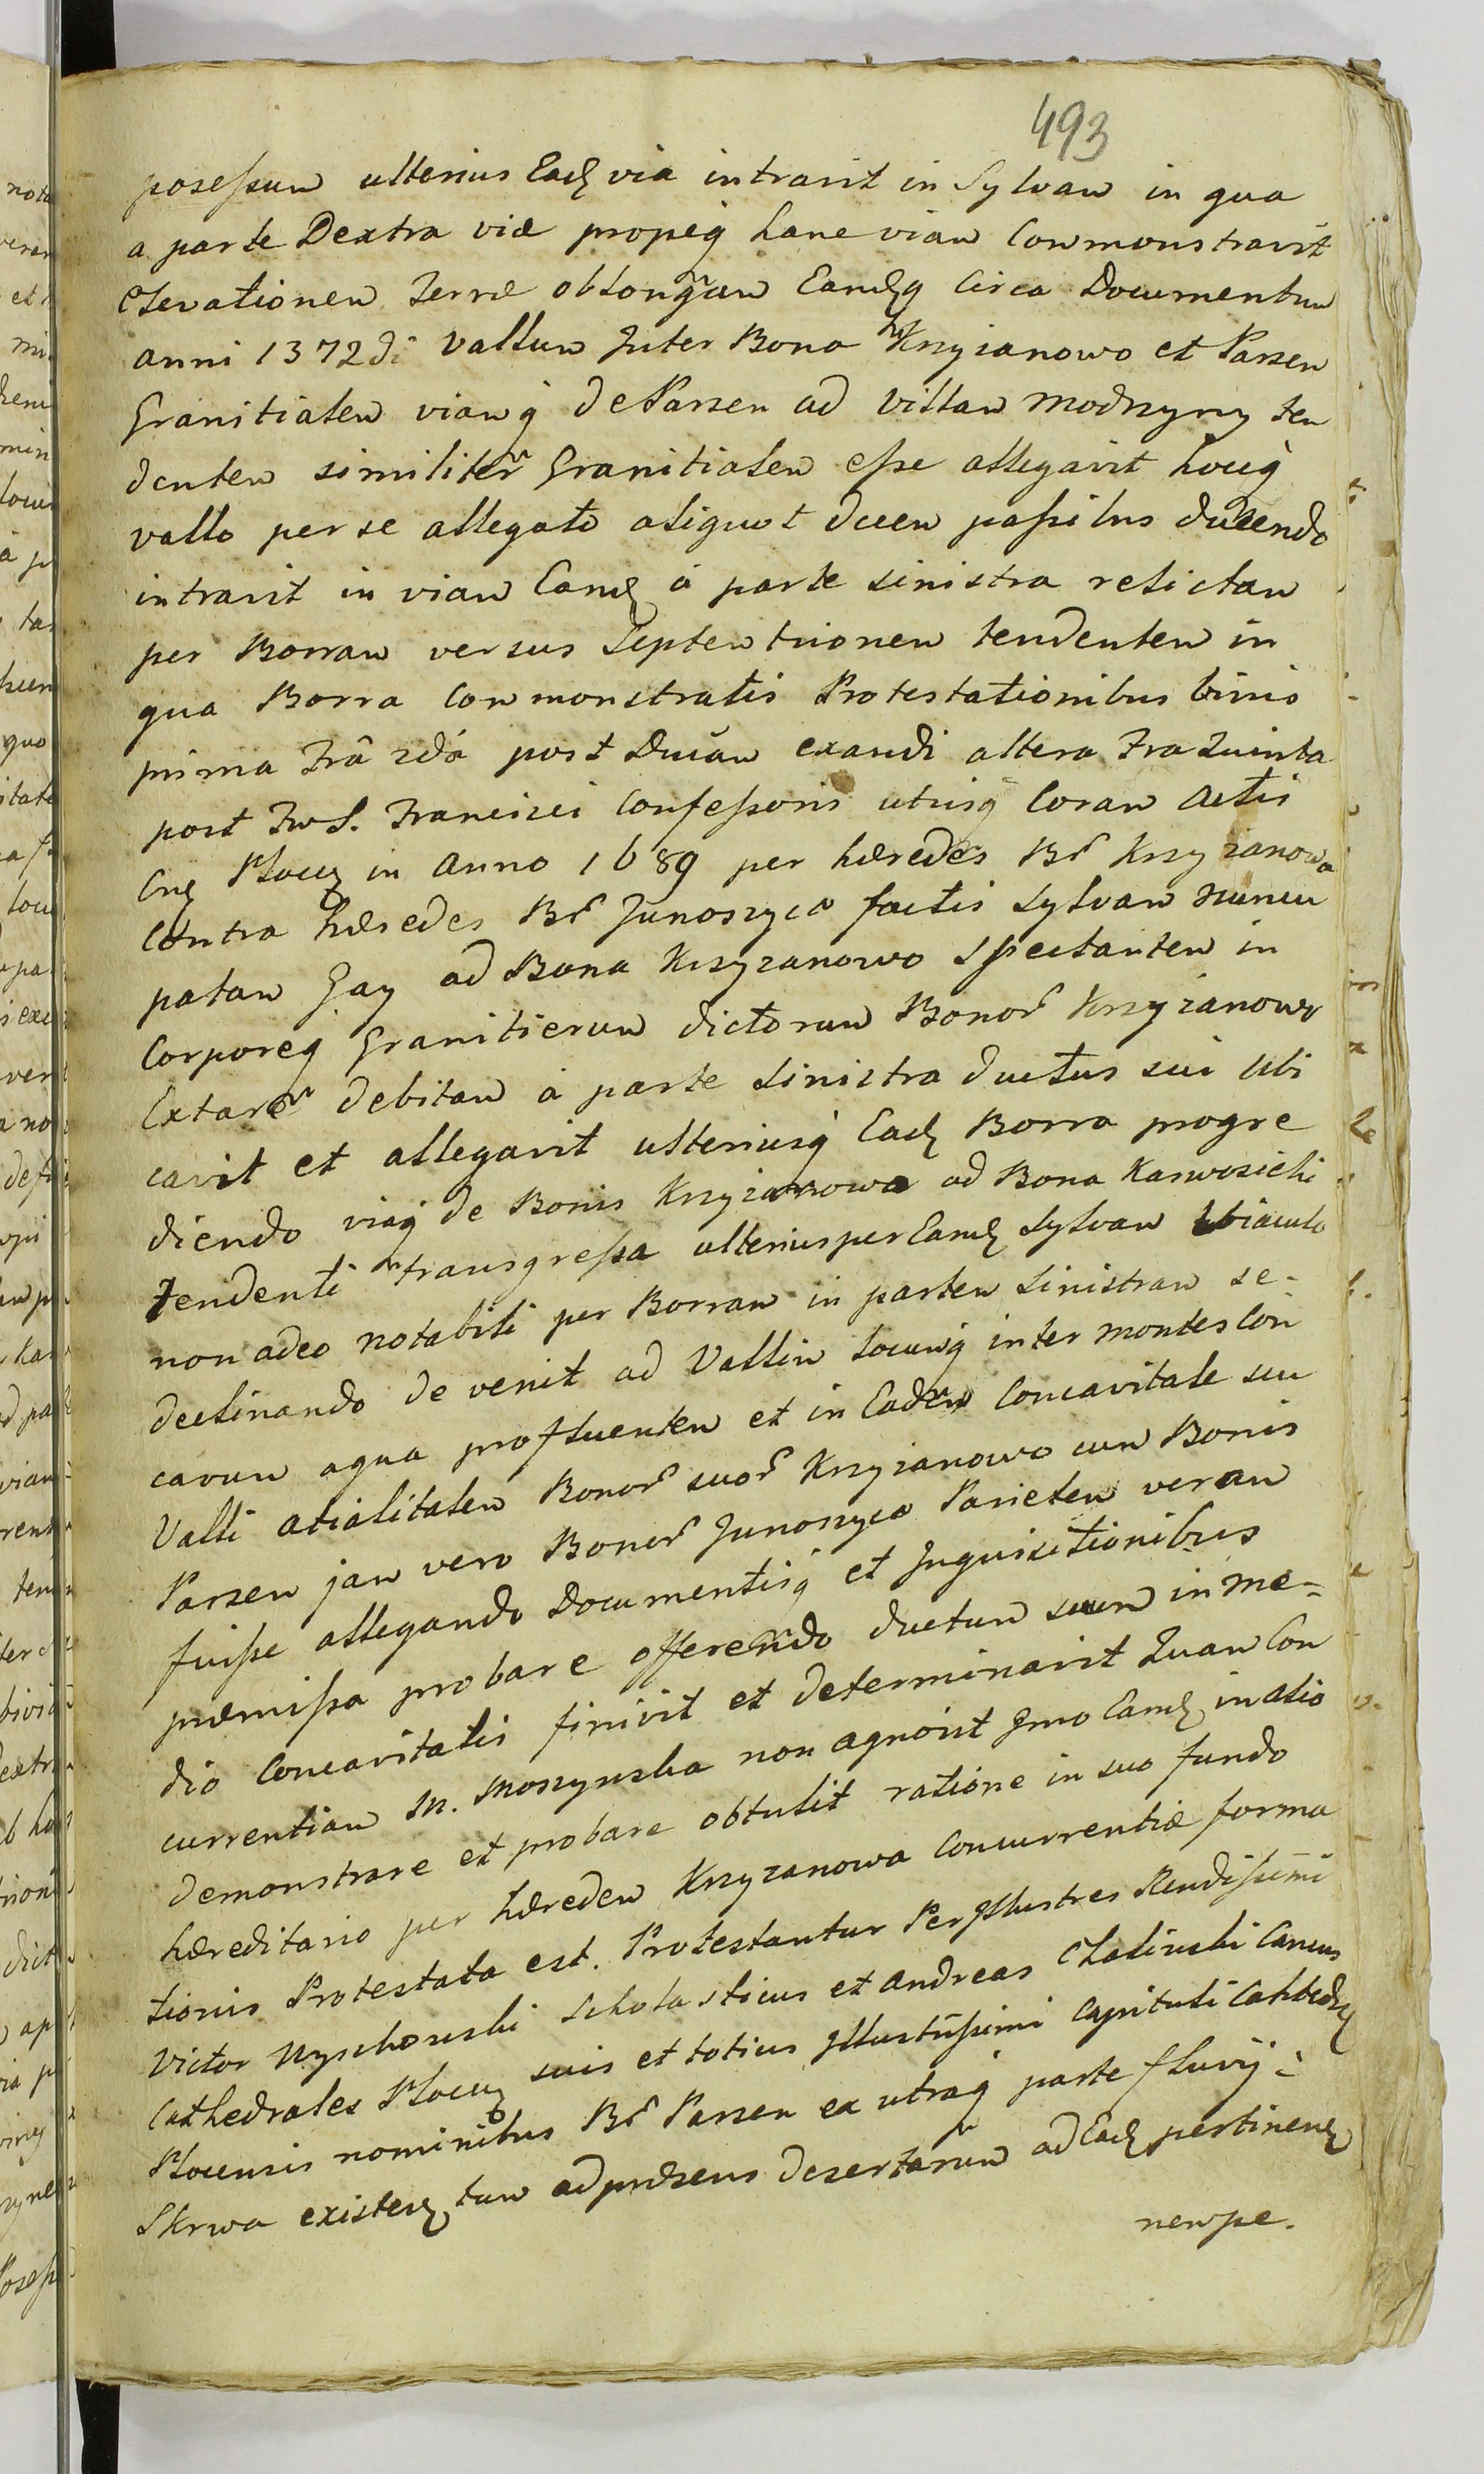 493
posessum ulterius Eadę via intravit in Sylvam in qua
a parte Dextra viæ propeq̃ hanc viam Commonstravit
Elevationem Terræ oblongam Eamdęq Circa Documentum
anni 1372di Vallum Inter Bona Krzyzanowo et Parzen
Granitialem viamq̃ de Parzen ad Villam Modrzyny ten
dentem similiter Granitialem esse allegavit hocq̃
vallo per se allegato aliquot duen passibus ducendo
intravit in viam Eamdę á parte sinistra relictam
per Borram versus Septemtrionem tendentem in
qua Borra Commonstratis Protestationibus binis
prima Frâ 2dá post Dnicam exaudi altera Fra Quinta
post F. S. Francisci Confessoris utrisq̃ Coram Actis
Płocę in Anno 1689 per hæredes Br̃ Krzyzanowa
Contra hæredes Br̃ Junoszyce factis Sylvam nuncu
patam Gay ad Bona Krzyzanowo Spectantem in
Corporeq̃ Granitierum dictorum Bonor̃ Krzyzanowo
Extare debitam á parte Sinistra ductus sui Ubi
cavit et allegavit ulteriusq̃ Eadę Borra progre
diendo viaq̃ de Bonis Krzyzanowa ad Bona Karwosieki
Tendenti transgressa ulterius per Eamdę Sylvam viaculo
non adeo notabili per Borram in partem Sinistram se-
declinando de venit ad Vallem locumq̃ inter montes Con
cavum aqua profluentem et in Eadem Concavitate seu
Valli acialitatem Bonor̃ suor̃ Krzyzanowo cum Bonis
Parzen jam vero Bonor̃ Junoszyce Parietem veram
fuisse allegando Documentisq̃ et Inquisitionibus
præmissa probare offerendo ductum suum in me-
dio Concavitatis finivit et determinavit Quam Con
currentiam M. Moszynska non agnovit Imo Eamdę in alio
demonstrare et probare obtulit ratione in suo fundo
hæreditario per hæredem Krzyzanowa Concurrentiæ forma
tionis Protestata est. Protestantur Perillustres Rendissimi
Victor Wyschowski Scholasticus et Andreas Chalinski Cancus
Cathedrales Płocę suis et totius Illustrissimi Capituli Cathedrę
Plocensis nominibus Br̃ Parzen ex utraq̃ parte fluvij
Skrwa existenę tum ad præsens desertarum ad Eadę pertinenę
nempe.